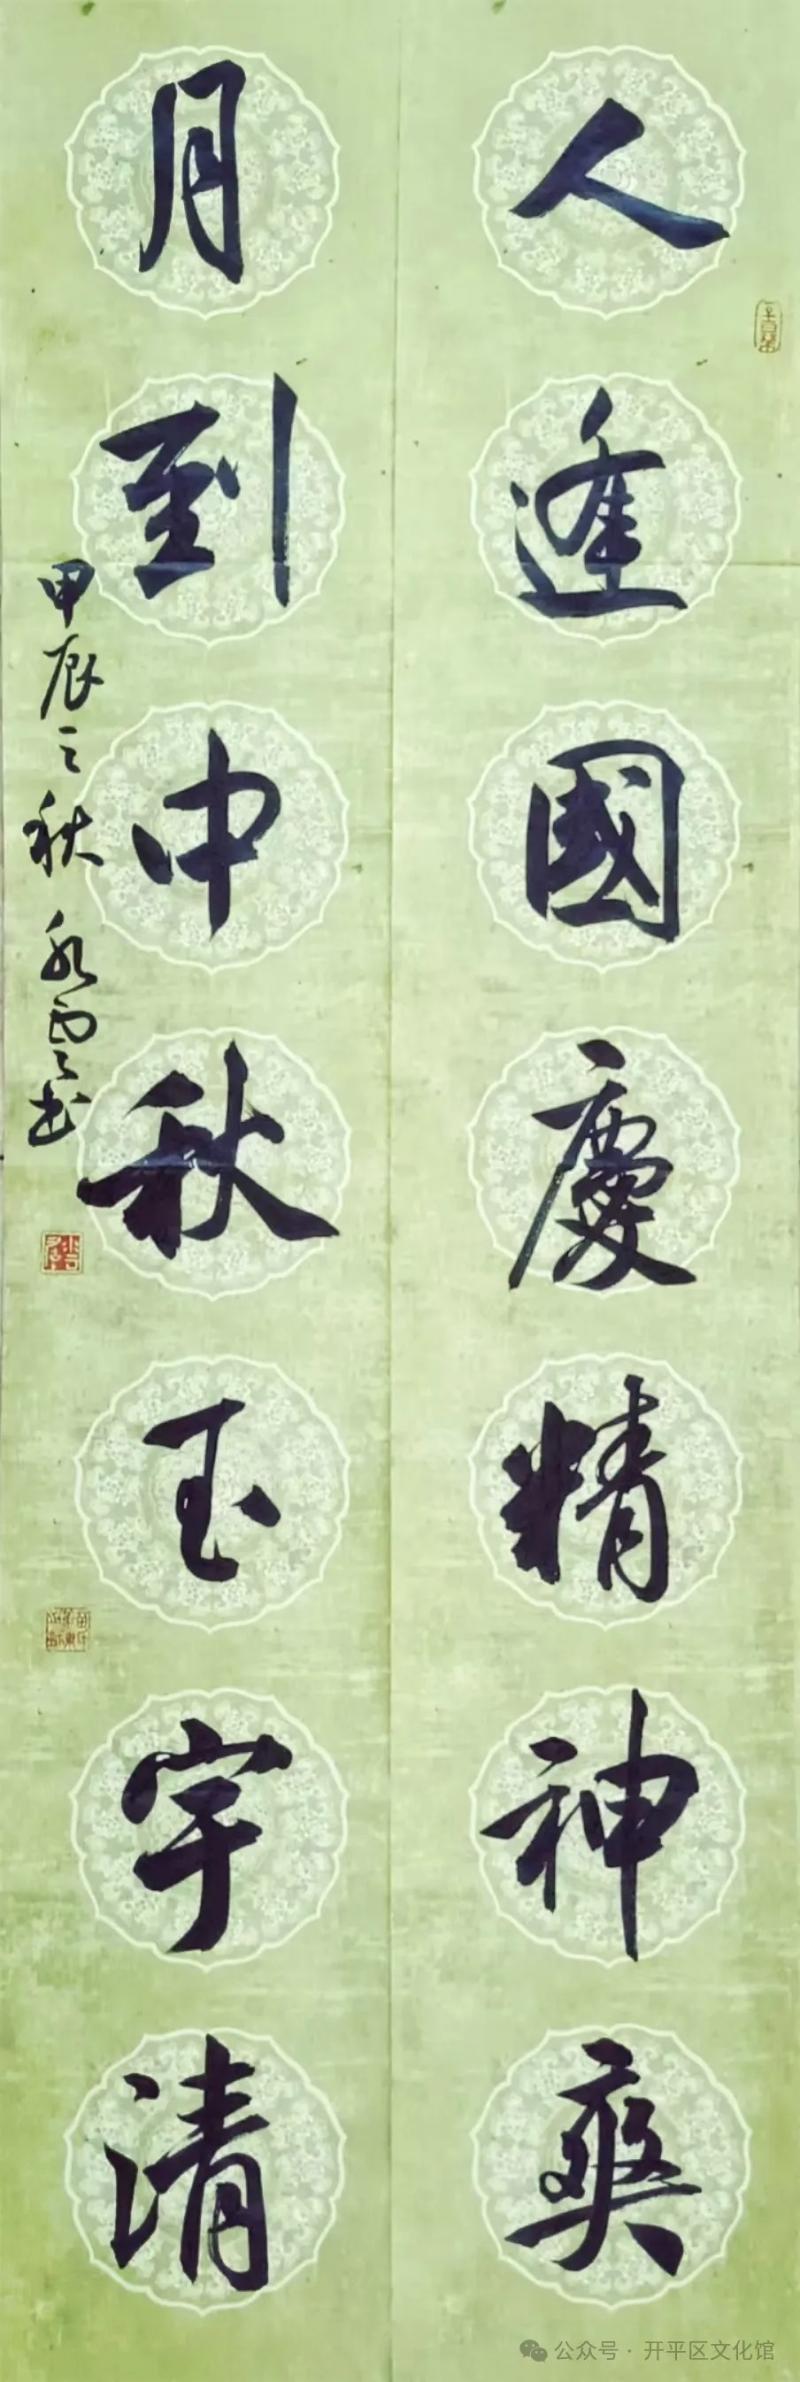 人逢國慶精神爽
月到中秋玉宇清
甲辰之秋 永雲书
公众号·开平区文化馆